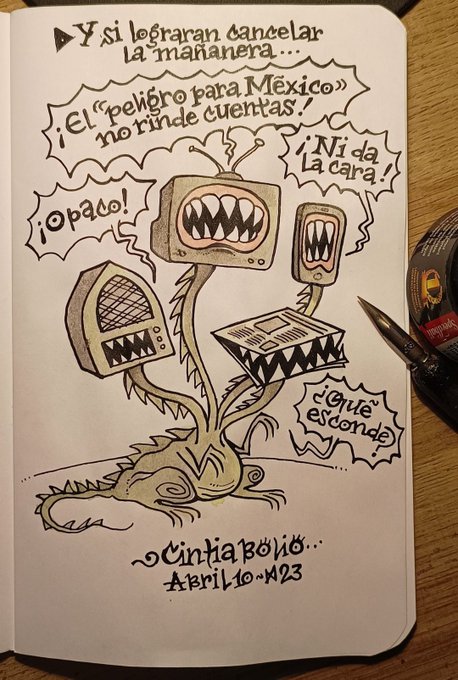 Y si lograran cancelar
la mañanera...
¡El "peligro para México"
no rinde cuentas!
¡Ni da
la cara!
¡Opaco!
¿Qué
esconde?
Cintia Bolio...
Abril 10~A23